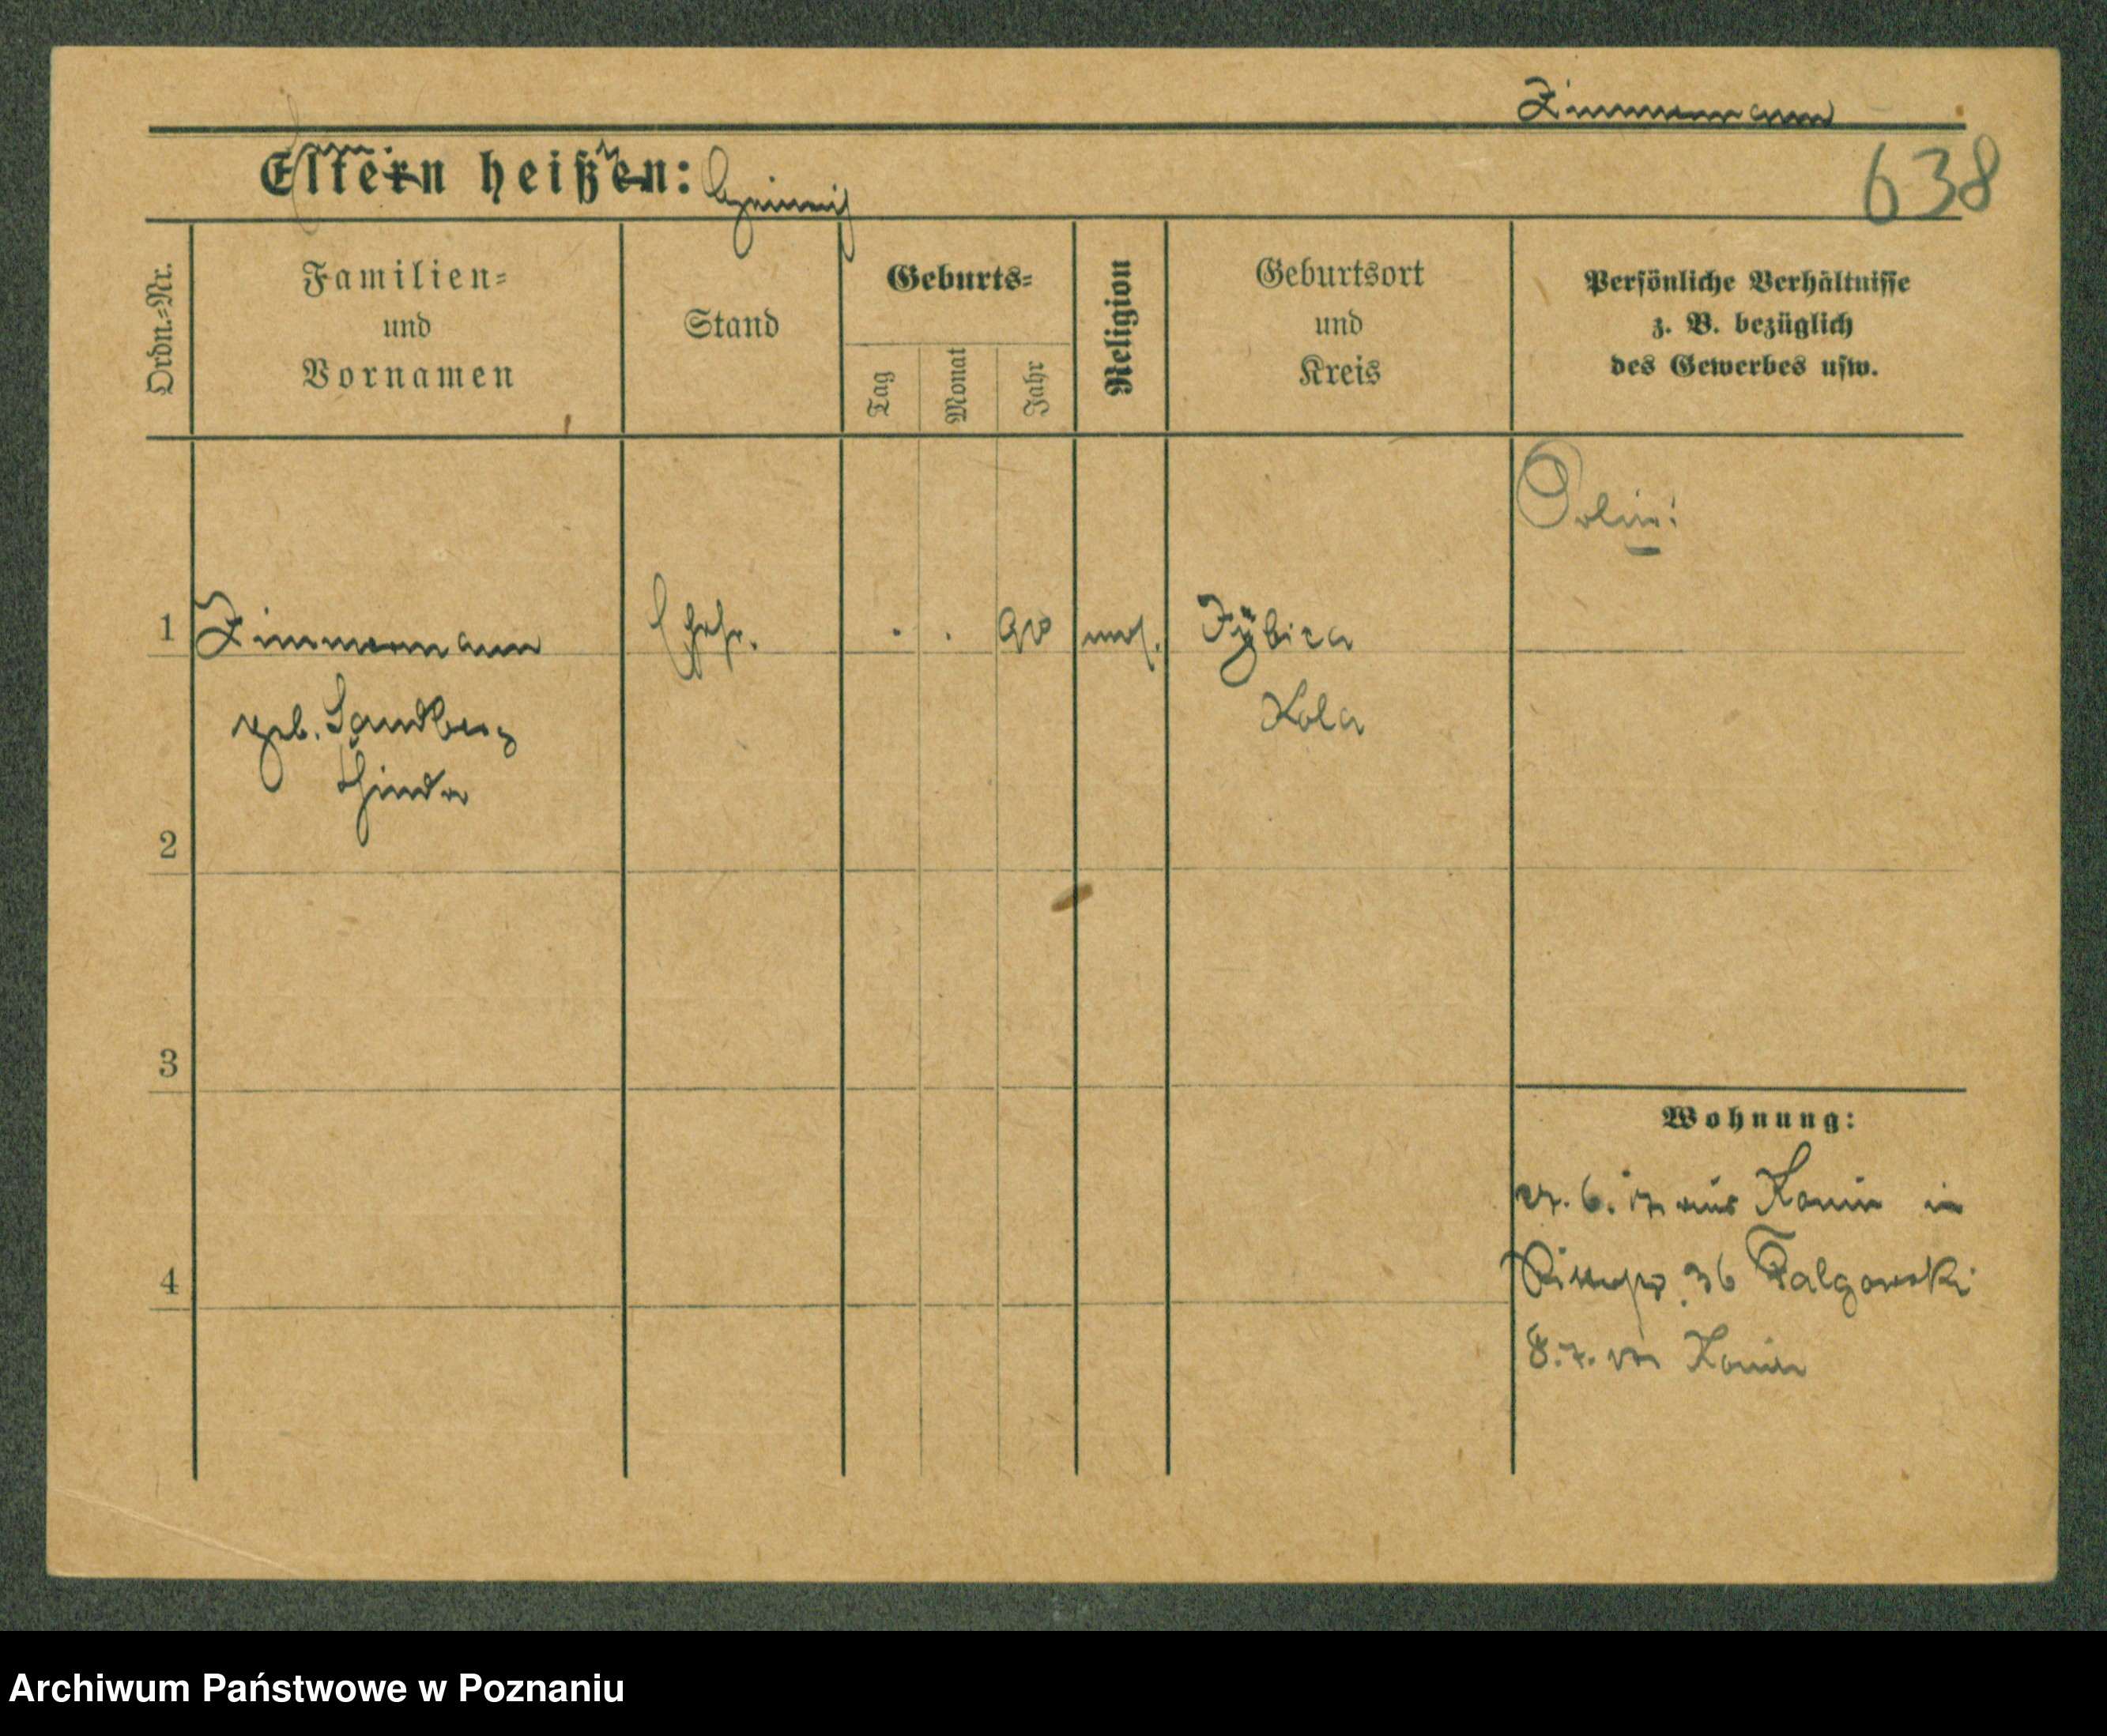 Zimmermann
638
Eltern heißen:
Ordn.=Nr.
Familien=
und
Vornamen
Stand
Geburts=
Tag
Monat
Jahr
Religion
Geburtsort
und
Kreis
Persönliche Verhältnisse
z. B. bezüglich
des Gewerbes usw.
Polin:
1
Zimmermann
Ehefr.
90
mos.
Izbica
geb. Sandberg
Kolo
Hinda
2
3
Wohnung:
6. 17 aus Konin in
4
36
8.7. Konin
Archiwum Państwowe w Poznaniu